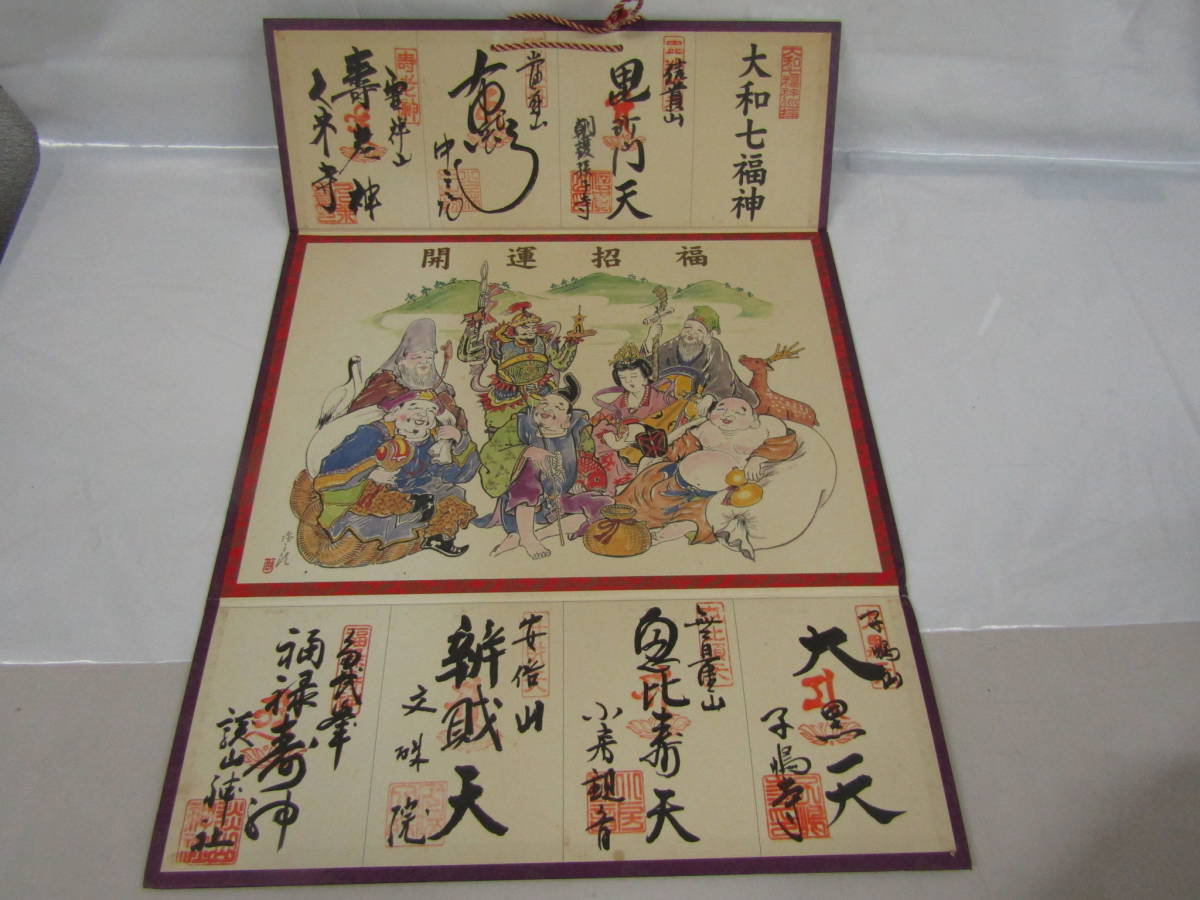 大和七福神
信貴山
毘沙門天
朝護孫子寺
當麻山
布袋
中之坊
霊禅山
寿老神
久米寺
開運招福
子嶋山
大黒天
子嶋寺
無量山
恵比寿天
小房観音
安倍山
辨財天
文殊院
多武峯
福禄寿神
談山神社